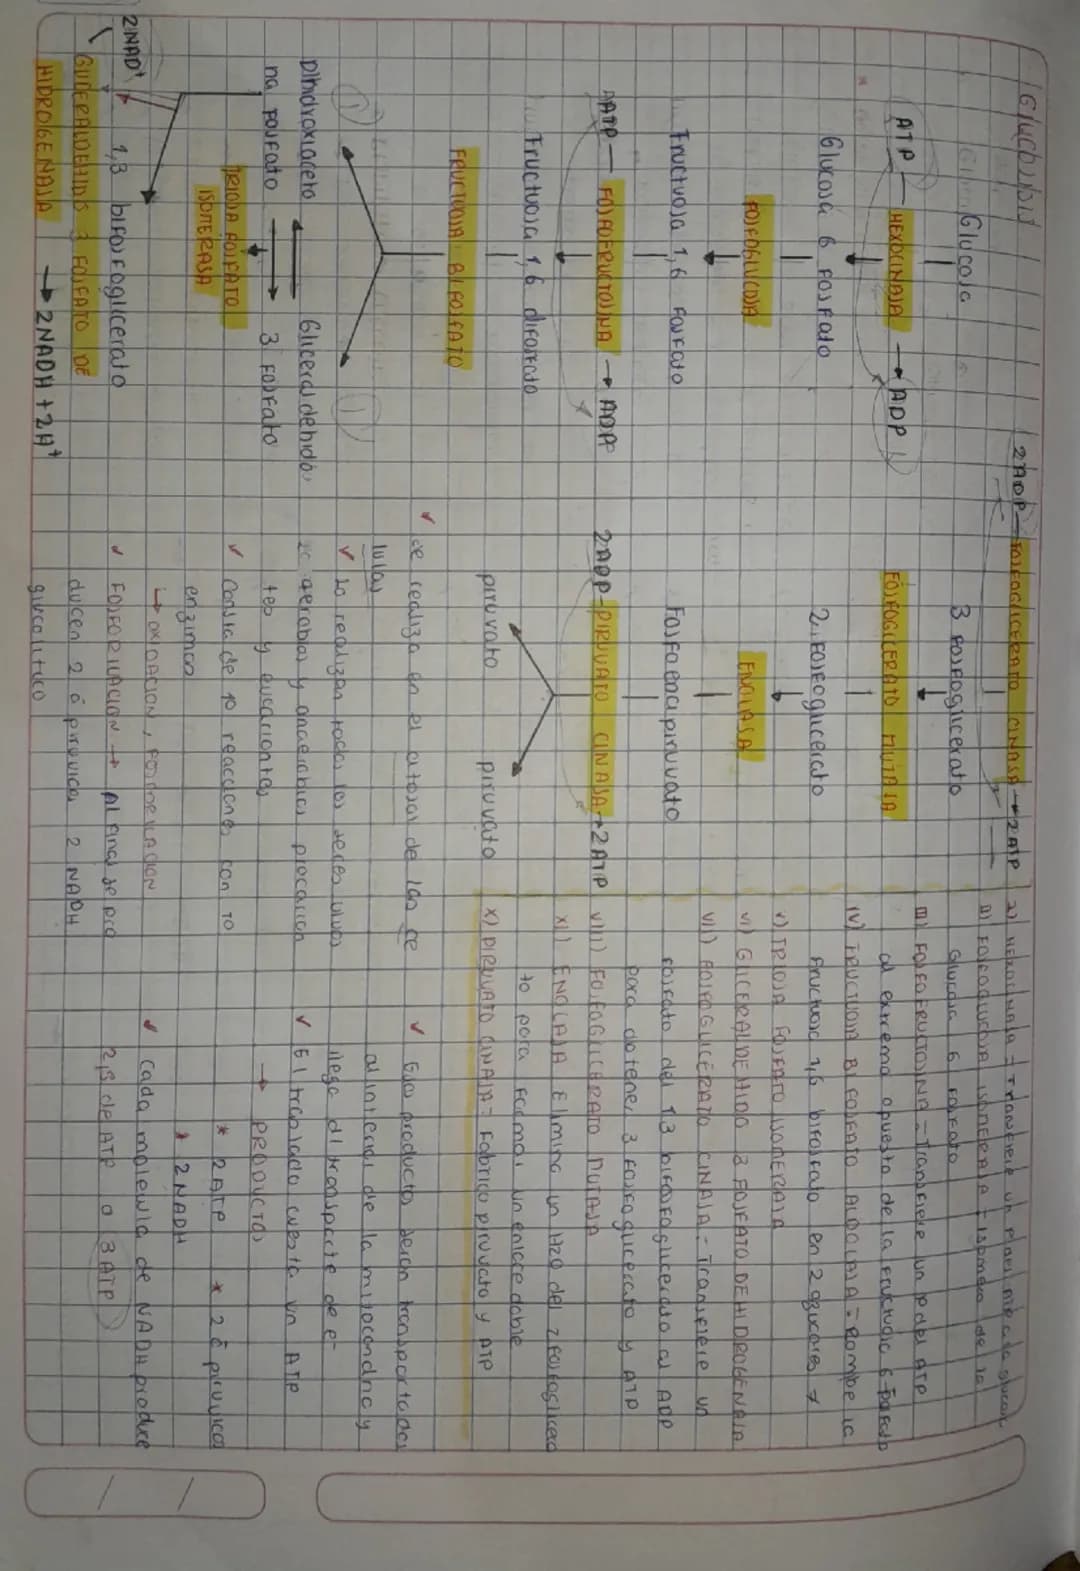 Glucólisis
Glucosa
ATP — HEXOCINASA → ADP
Glucosa 6 fosfato
FOSFOGLUCOSA
Fructuosa 1,6 fosfato
AATP — FOSFOFRUCTOSINA → ADP
Fructuosa 1,6 difosfato
FRUCTUOSA BIFOSFATO
Dihidroxiaceto Gliceraldehido
na fosfato 3 fosfato
TRIOSA FOSFATO
ISOMERASA
2NAD+
1,3 bifosfoglicerato
GLICERALDEHIDO 3 FOSFATO DE
HIDROGENASA → 2NADH + 2H+
2ADP — FOSFOGLICERATO CINASA → 2ATP
3 fosfoglicerato
FOSFOGLICERATO MUTASA
2 fosfoglicerato
ENOLASA
Fosfoenolpiruvato
2ADP – PIRUVATO CINASA → 2ATP
piruvato piruvato
✓ se realiza en el citosol de las ce
lulas
✓ lo realizan todos los seres vivos
aerobios y anaerobios procarion
tes y eucariontes
✓ Consta de 10 reacciones con 10
enzimas
→ OXIDACION, FERMENTACION
✓ FOSFORILACION → Al final se pro
ducen 2 á piruvico 2 NADH
glucolitico
HEXOCINASA = Transfiere un de glucosa
II) FOSFOGLUCOSA ISOMERASA = Isomero de la
Glucosa 6 fosfato
III) FOSFOFRUCTOSINA = Transfiere un p del ATP
al extremo opuesto de la fructuosa 6-fosfato
IV) FRUCTUOSA BIFOSFATO ALDOLASA = Rompe la
fructuosa 1,6 bifosfato en 2 azucares
V) TRIOSA FOSFATO ISOMERASA
VI) GLICERALDEHIDO 3 FOSFATO DEHIDROGENASA
VII) FOSFOGLICERATO CINASA = Transfiere un
fosfato del 1,3 bifosfoglicerato al ADP
para obtener 3 fosfoglicerato y ATP
VIII) FOSFOGLICERATO MUTASA
XI) ENOLASA Elimina un H2O del 2 fosfoglicera
to para formar un enlace doble
X) PIRUVATO CINASA = Fabrica piruvato y ATP
✓ Esos productos seran transportados
al interior de la mitocondria y
llega al transporte de e-
✓ El traslado cuesta un ATP
→ PRODUCTOS
* 2 ATP * 2 á piruvico
* 2 NADH
✓ Cada molecula de NADH produce
2,5 de ATP o 3ATP